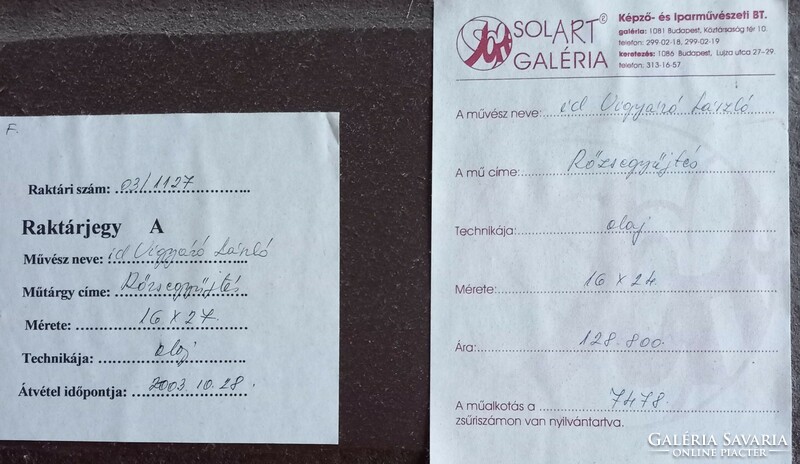 F.
Raktári szám: 03/1127
Raktárjegy A
Művész neve: id Vigyázó László
Műtárgy címe: Rőzsegyűjtés
Mérete: 16 x 27.
Technikája: olaj
Átvétel időpontja: 2003.10.28.
SOLART
GALÉRIA
Képző- és Iparművészeti BT.
galéria: 1081 Budapest, Köztársaság tér 10.
telefon: 299-02-18, 299-02-19
keretezés: 1086 Budapest, Lujza utca 27-29.
telefon: 313-16-57
A művész neve: id Vigyázó László
A mű címe: Rőzsegyűjtés
Technikája: olaj
Mérete: 16 x 24.
Ára: 128.800.
A műalkotás a 7478.
zsűriszámon van nyilvántartva.
GALÉRIA SAVARIA
ONLINE PIACTÉR